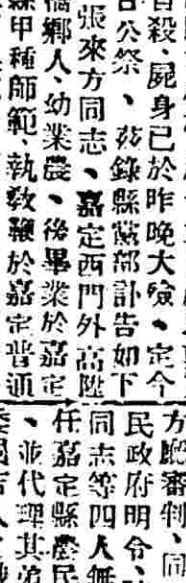 自殺、屍身已於昨晚大殮、定今
公祭、茲錄縣黨部訃告如下
張來方同志、嘉定西門外高陞
橋鄉人、幼業農、後畢業於嘉定
縣甲種師範、執敎鞭於嘉定普通
方廳審判、同
民政府明令、
同志等四人無
任嘉定縣農民
、並代理其弟